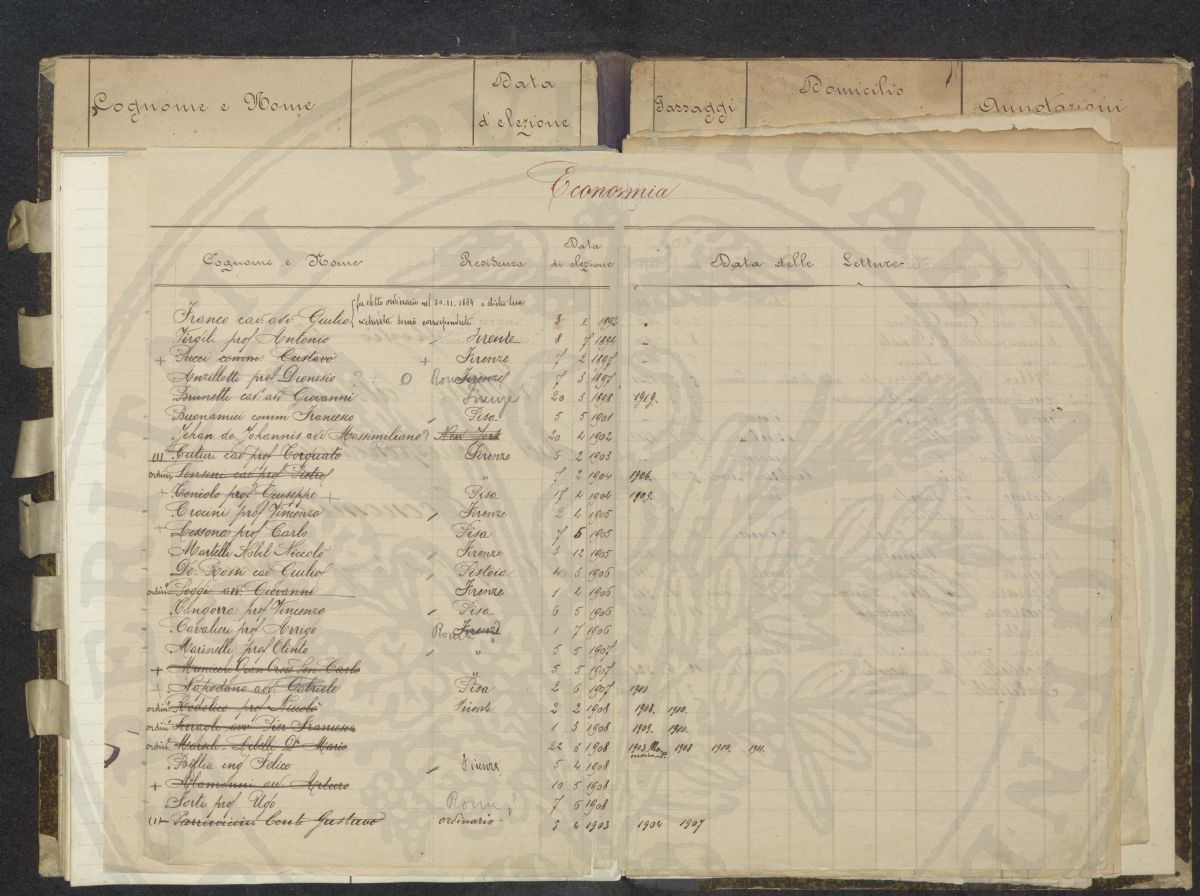 Cognome e Nome Data d'elezione Passaggi Domicilio Annotazioni
Economia
Cognome e Nome Residenza Data di elezione Data delle Letture
fu eletto ordinario nel 30.11.1884 e dietro sua
Franco cav. avv. Giulio richiesta tornò corrispondente 3 X 1892
Virgili prof Antonio Firenze 8 7 1894
+ Pucci comm. Gustavo + Firenze 7 2 1897
Anzillotti prof Dionisio Roma Firenze 7 3 1897
Brunetti cav. avv Giovanni Firenze 20 3 1898 1919.
Buonamici comm Francesco Pisa 5 5 1901
Jehan de Johannis avv Massimiliano? New York 20 4 1902
Cuturi cav prof Torquato Firenze 6 2 1903
ordin° Sensini cav prof Pietro " 7 2 1904 1906.
+ Toniolo prof Giuseppe + Pisa 17 4 1904 1909.
Crocini prof Vincenzo Firenze 2 4 1905
+ Lessona prof Carlo Pisa 7 5 1905
Martelli Nobil Niccolò Firenze 3 12 1905
De Rossi cav Giulio Pistoia 4 3 1906
ordin° Poggi avv. Giovanni Firenze 1 4 1906
Tangorra prof Vincenzo Pisa 6 5 1906
Cavalieri prof Arrigo Roma Firenze 1 7 1906
Marinelli prof Olinto " 5 5 1907
+ Municchi Gran Croce Sen Carlo 5 5 1907
+ Napodano avv. Gabriele Pisa 2 6 1907 1911
ordin° Rodolico prof Niccolò Firenze 2 2 1908 1908. 1910.
ordin° Serragli avv Pier Francesco 1 3 1908 1909. 1910.
ordin° Marsili-Libelli Dr Mario 22 3 1908 1908 1910. 1911.
Billia ing Felice Firenze 5 4 1908
+ Alamanni avv Arturo 10 5 1908
Forti prof Ugo Roma? 7 6 1908
Parravicini Conte Gustavo ordinario 5 4 1903 1904 1907